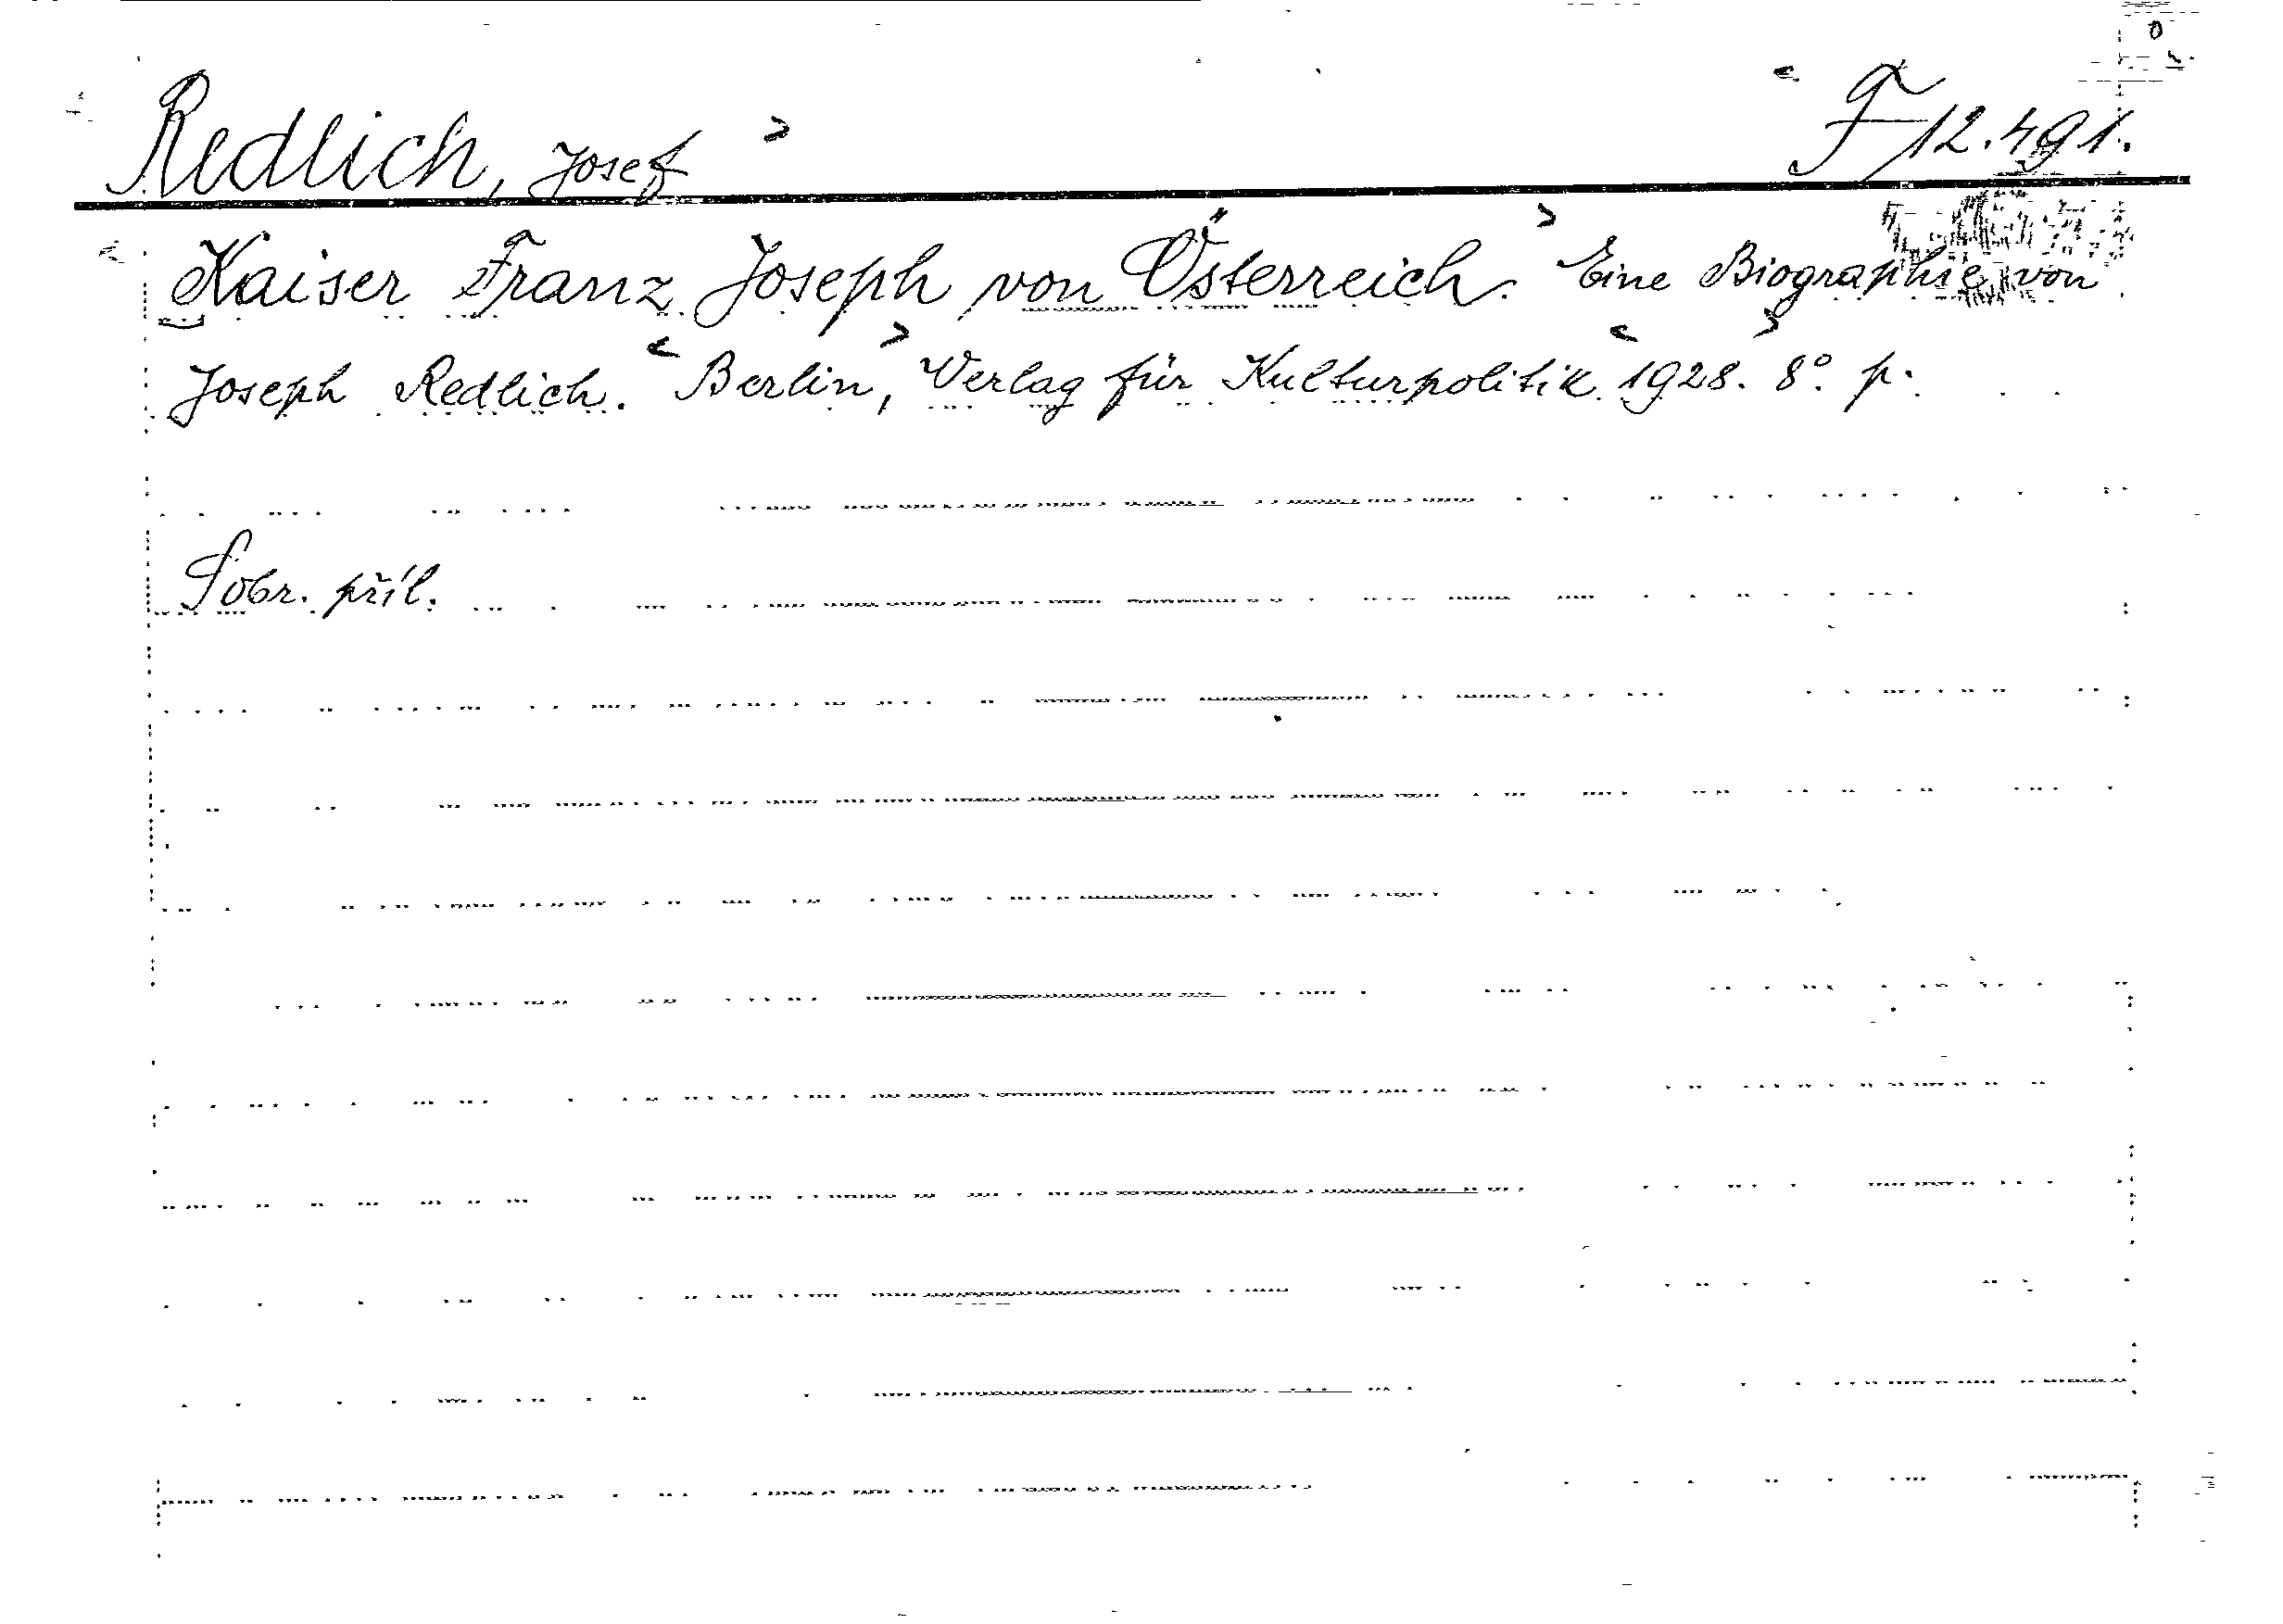 Redlich, Josef F 12.491.
Kaiser Franz Joseph von Österreich. Eine Biographie von
Joseph Redlich. Berlin, Verlag für Kulturpolitik 1928. 8° p.
Sobr. příl.